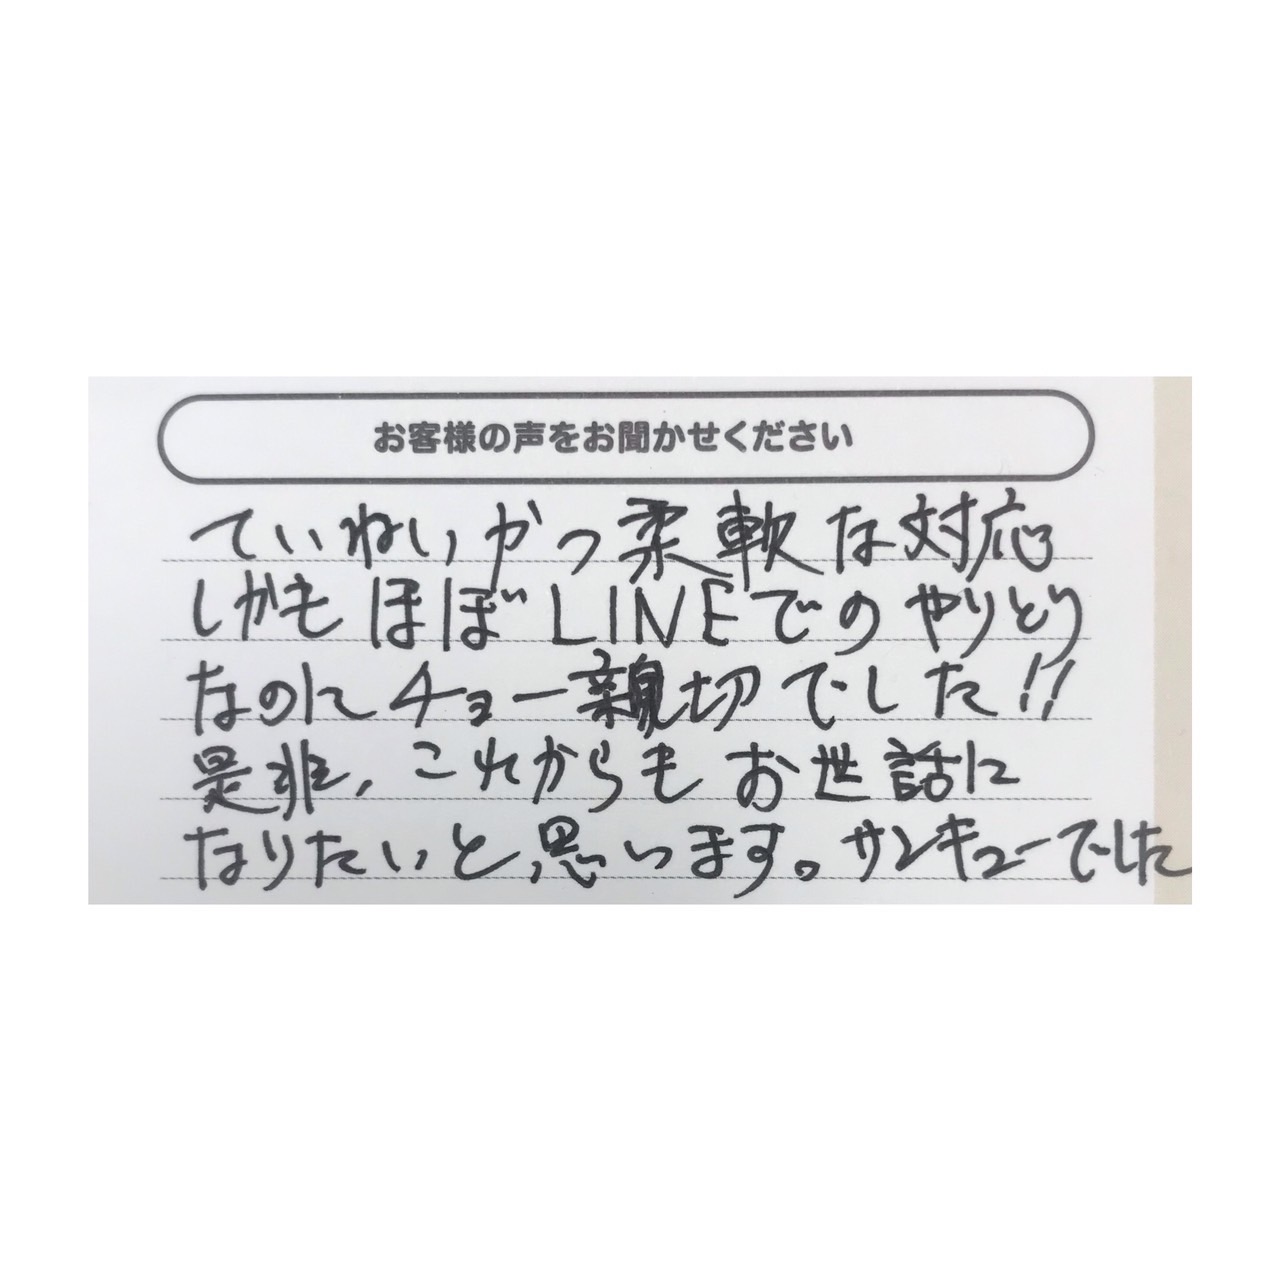 お客様の声をお聞かせください
ていねいかつ柔軟な対応
しかもほぼLINEでのやりとり
なのにチョー親切でした!!
是非、これからもお世話に
なりたいと思います。サンキューでした